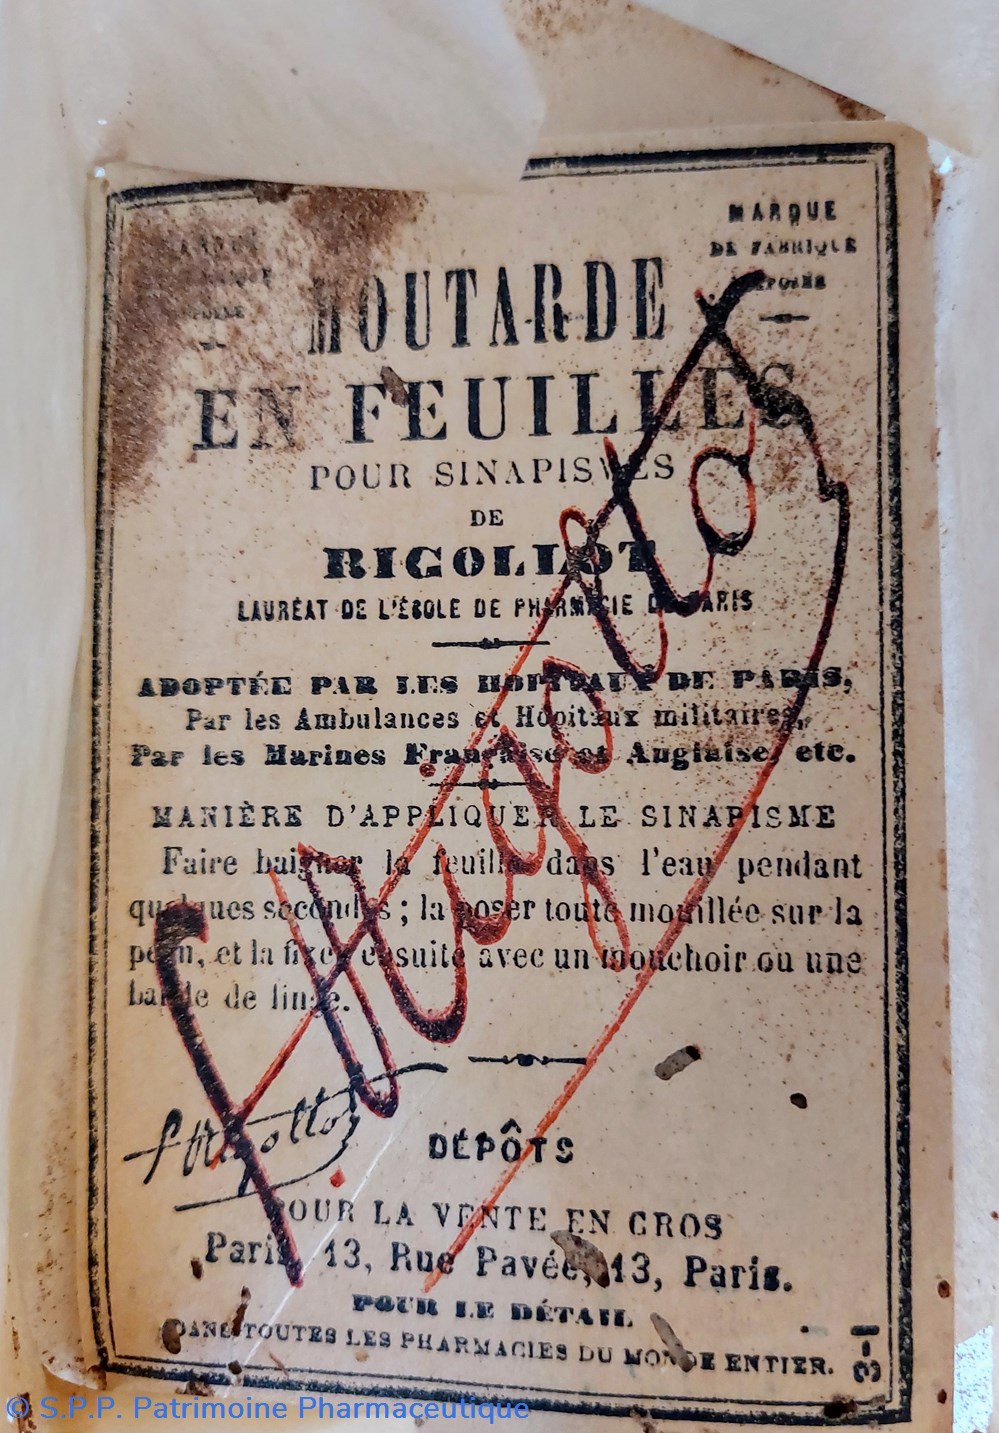 MARQUE
DE FABRIQUE
DÉPOSÉE
MOUTARDE
EN FEUILLES
POUR SINAPISMES
DE
RIGOLLOT
LAURÉAT DE L'ÉCOLE DE PHARMACIE DE PARIS
ADOPTÉE PAR LES HOPITAUX DE PARIS,
Par les Ambulances et Hôpitaux militaires,
Par les Marines Française et Anglaise, etc.
MANIÈRE D'APPLIQUER LE SINAPISME
Faire baigner la feuille dans l'eau pendant
quelques secondes ; la poser toute mouillée sur la
peau, et la fixer ensuite avec un mouchoir ou une
bande de linge.
DÉPÔTS
POUR LA VENTE EN GROS
Paris, 13, Rue Pavée, 13, Paris.
POUR LE DÉTAIL
DANS TOUTES LES PHARMACIES DU MONDE ENTIER.
© S.P.P. Patrimoine Pharmaceutique